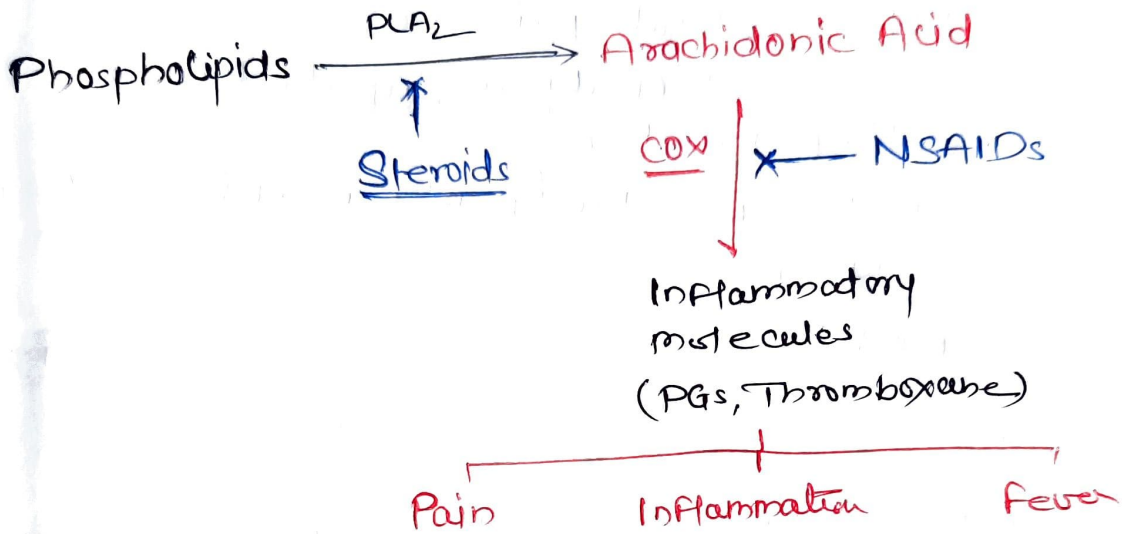 PLA2
Phospholipids
Arachidonic Acid
Steroids
COX
NSAIDs
Inflammatory
molecules
(PGs, Thromboxane)
Pain
Inflammation
Fever